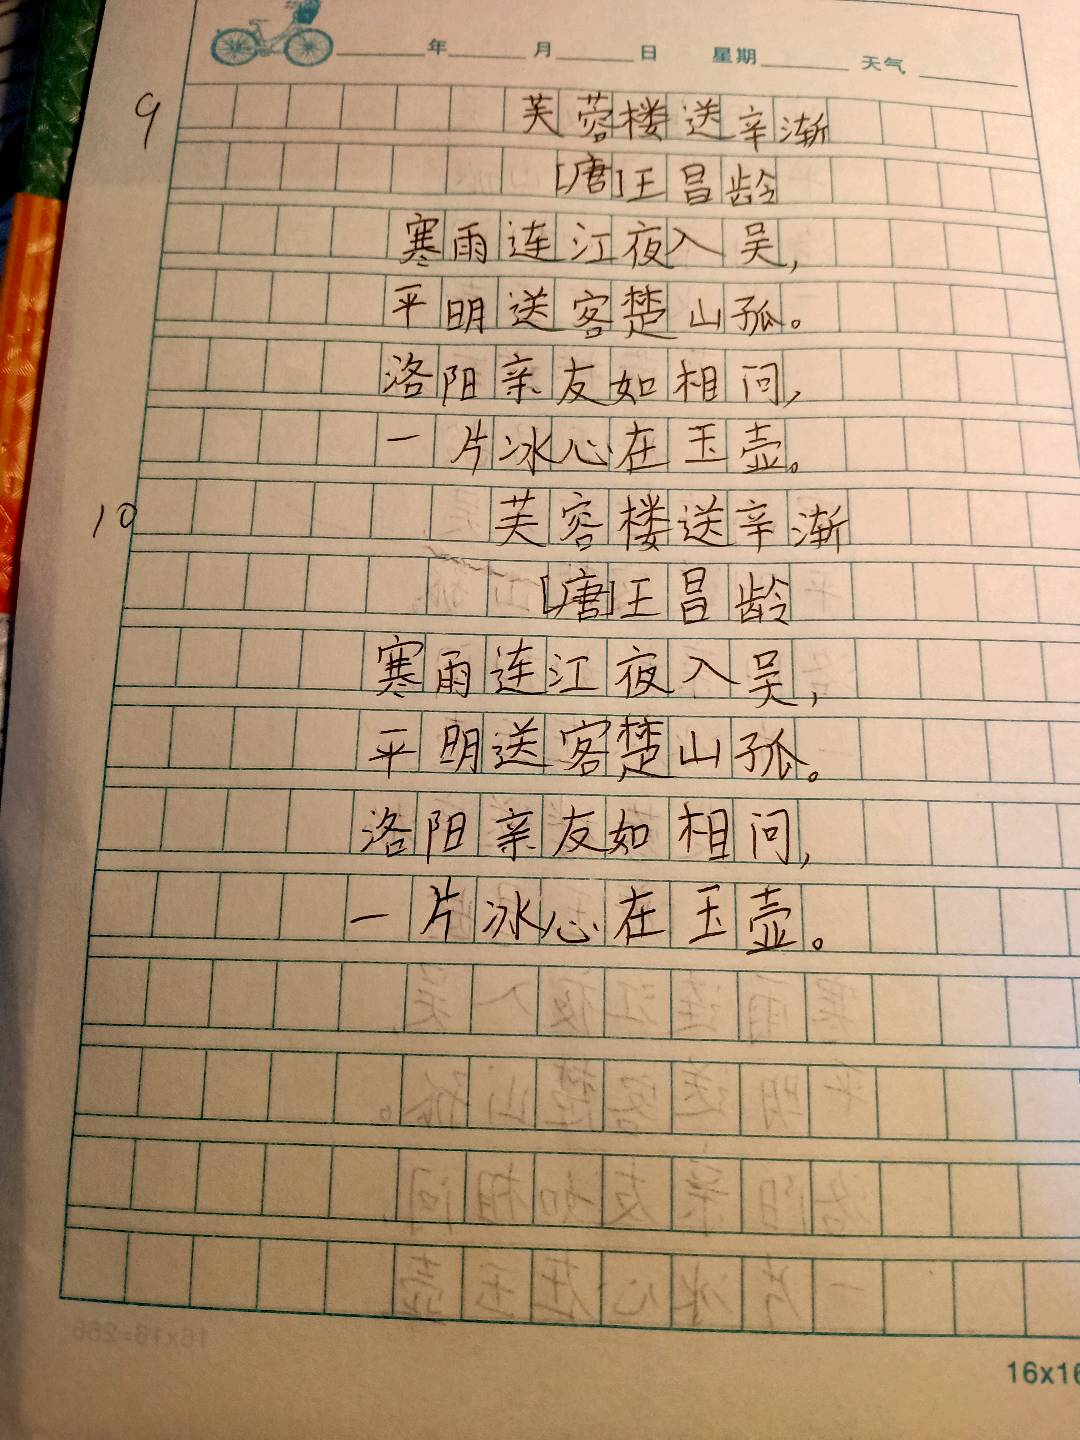 年 月 日 星期 天气
9 芙蓉楼送辛渐
[唐]王昌龄
寒雨连江夜入吴,
平明送客楚山孤。
洛阳亲友如相问,
一片冰心在玉壶。
10 芙容楼送辛渐
[唐]王昌龄
寒雨连江夜入吴,
平明送客楚山孤。
洛阳亲友如相问,
一片冰心在玉壶。
16x16